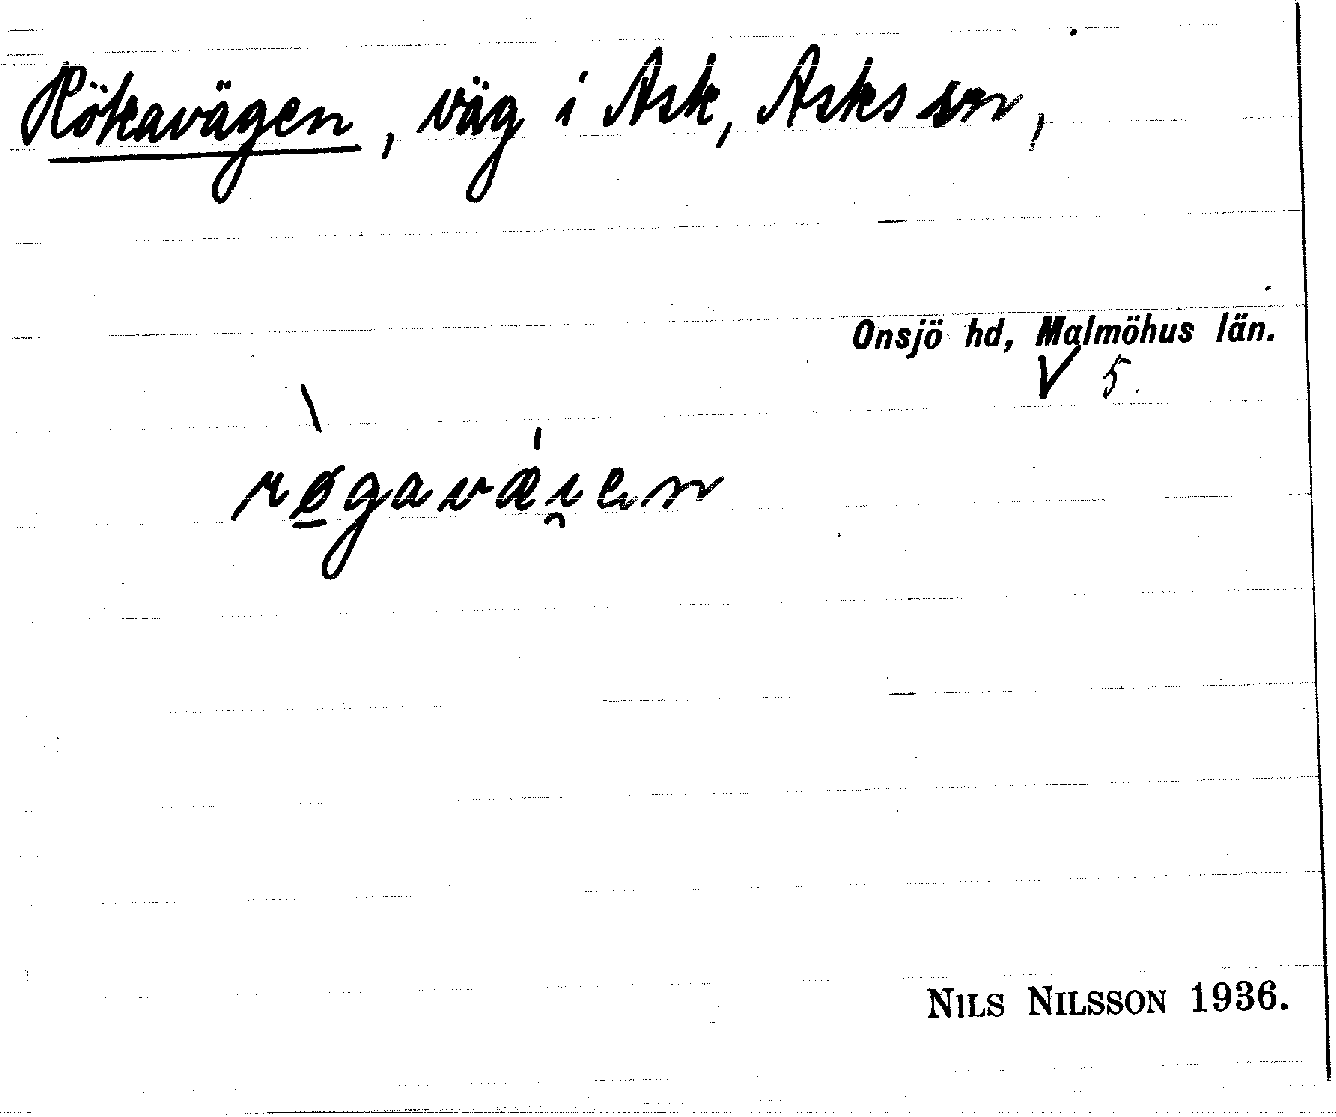 Rökavägen, väg i Ask, Asks sn,
Onsjö hd, Malmöhus län.
V 5.
rø̱gavæi̯en
NILS NILSSON 1936.